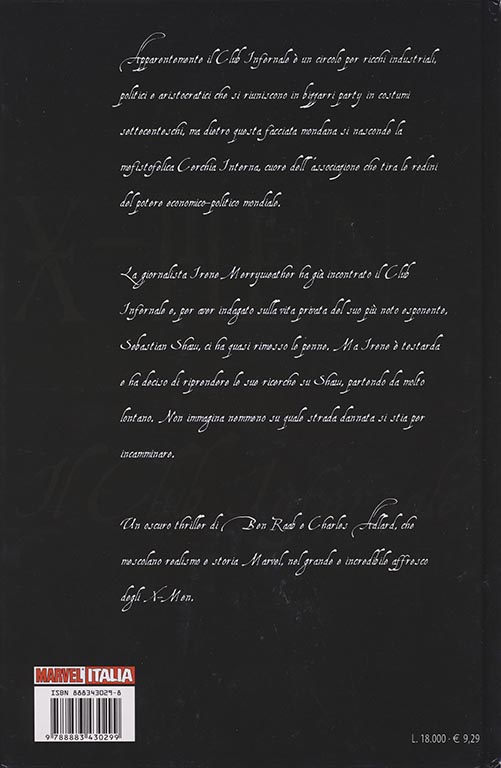 Apparentemente il Club Infernale è un circolo per ricchi industriali,
politici e aristocratici che si riuniscono in bizzarri party in costumi
settecenteschi, ma dietro questa facciata mondana si nasconde la
mefistofelica Cerchia Interna, cuore dell'associazione che tira le redini
del potere economico-politico mondiale.
La giornalista Irene Merryweather ha già incontrato il Club
Infernale e, per aver indagato sulla vita privata del suo più noto esponente,
Sebastian Shaw, ci ha quasi rimesso le penne. Ma Irene è testarda
e ha deciso di riprendere le sue ricerche su Shaw, partendo da molto
lontano. Non immagina nemmeno su quale strada dannata si stia per
incamminare.
Un oscuro thriller di Ben Raab e Charles Adlard, che
mescolano realismo e storia Marvel, nel grande e incredibile affresco
degli X-Men.
MARVEL ITALIA
ISBN 888343029-8
9 788883 430299
L. 18.000 - € 9,29